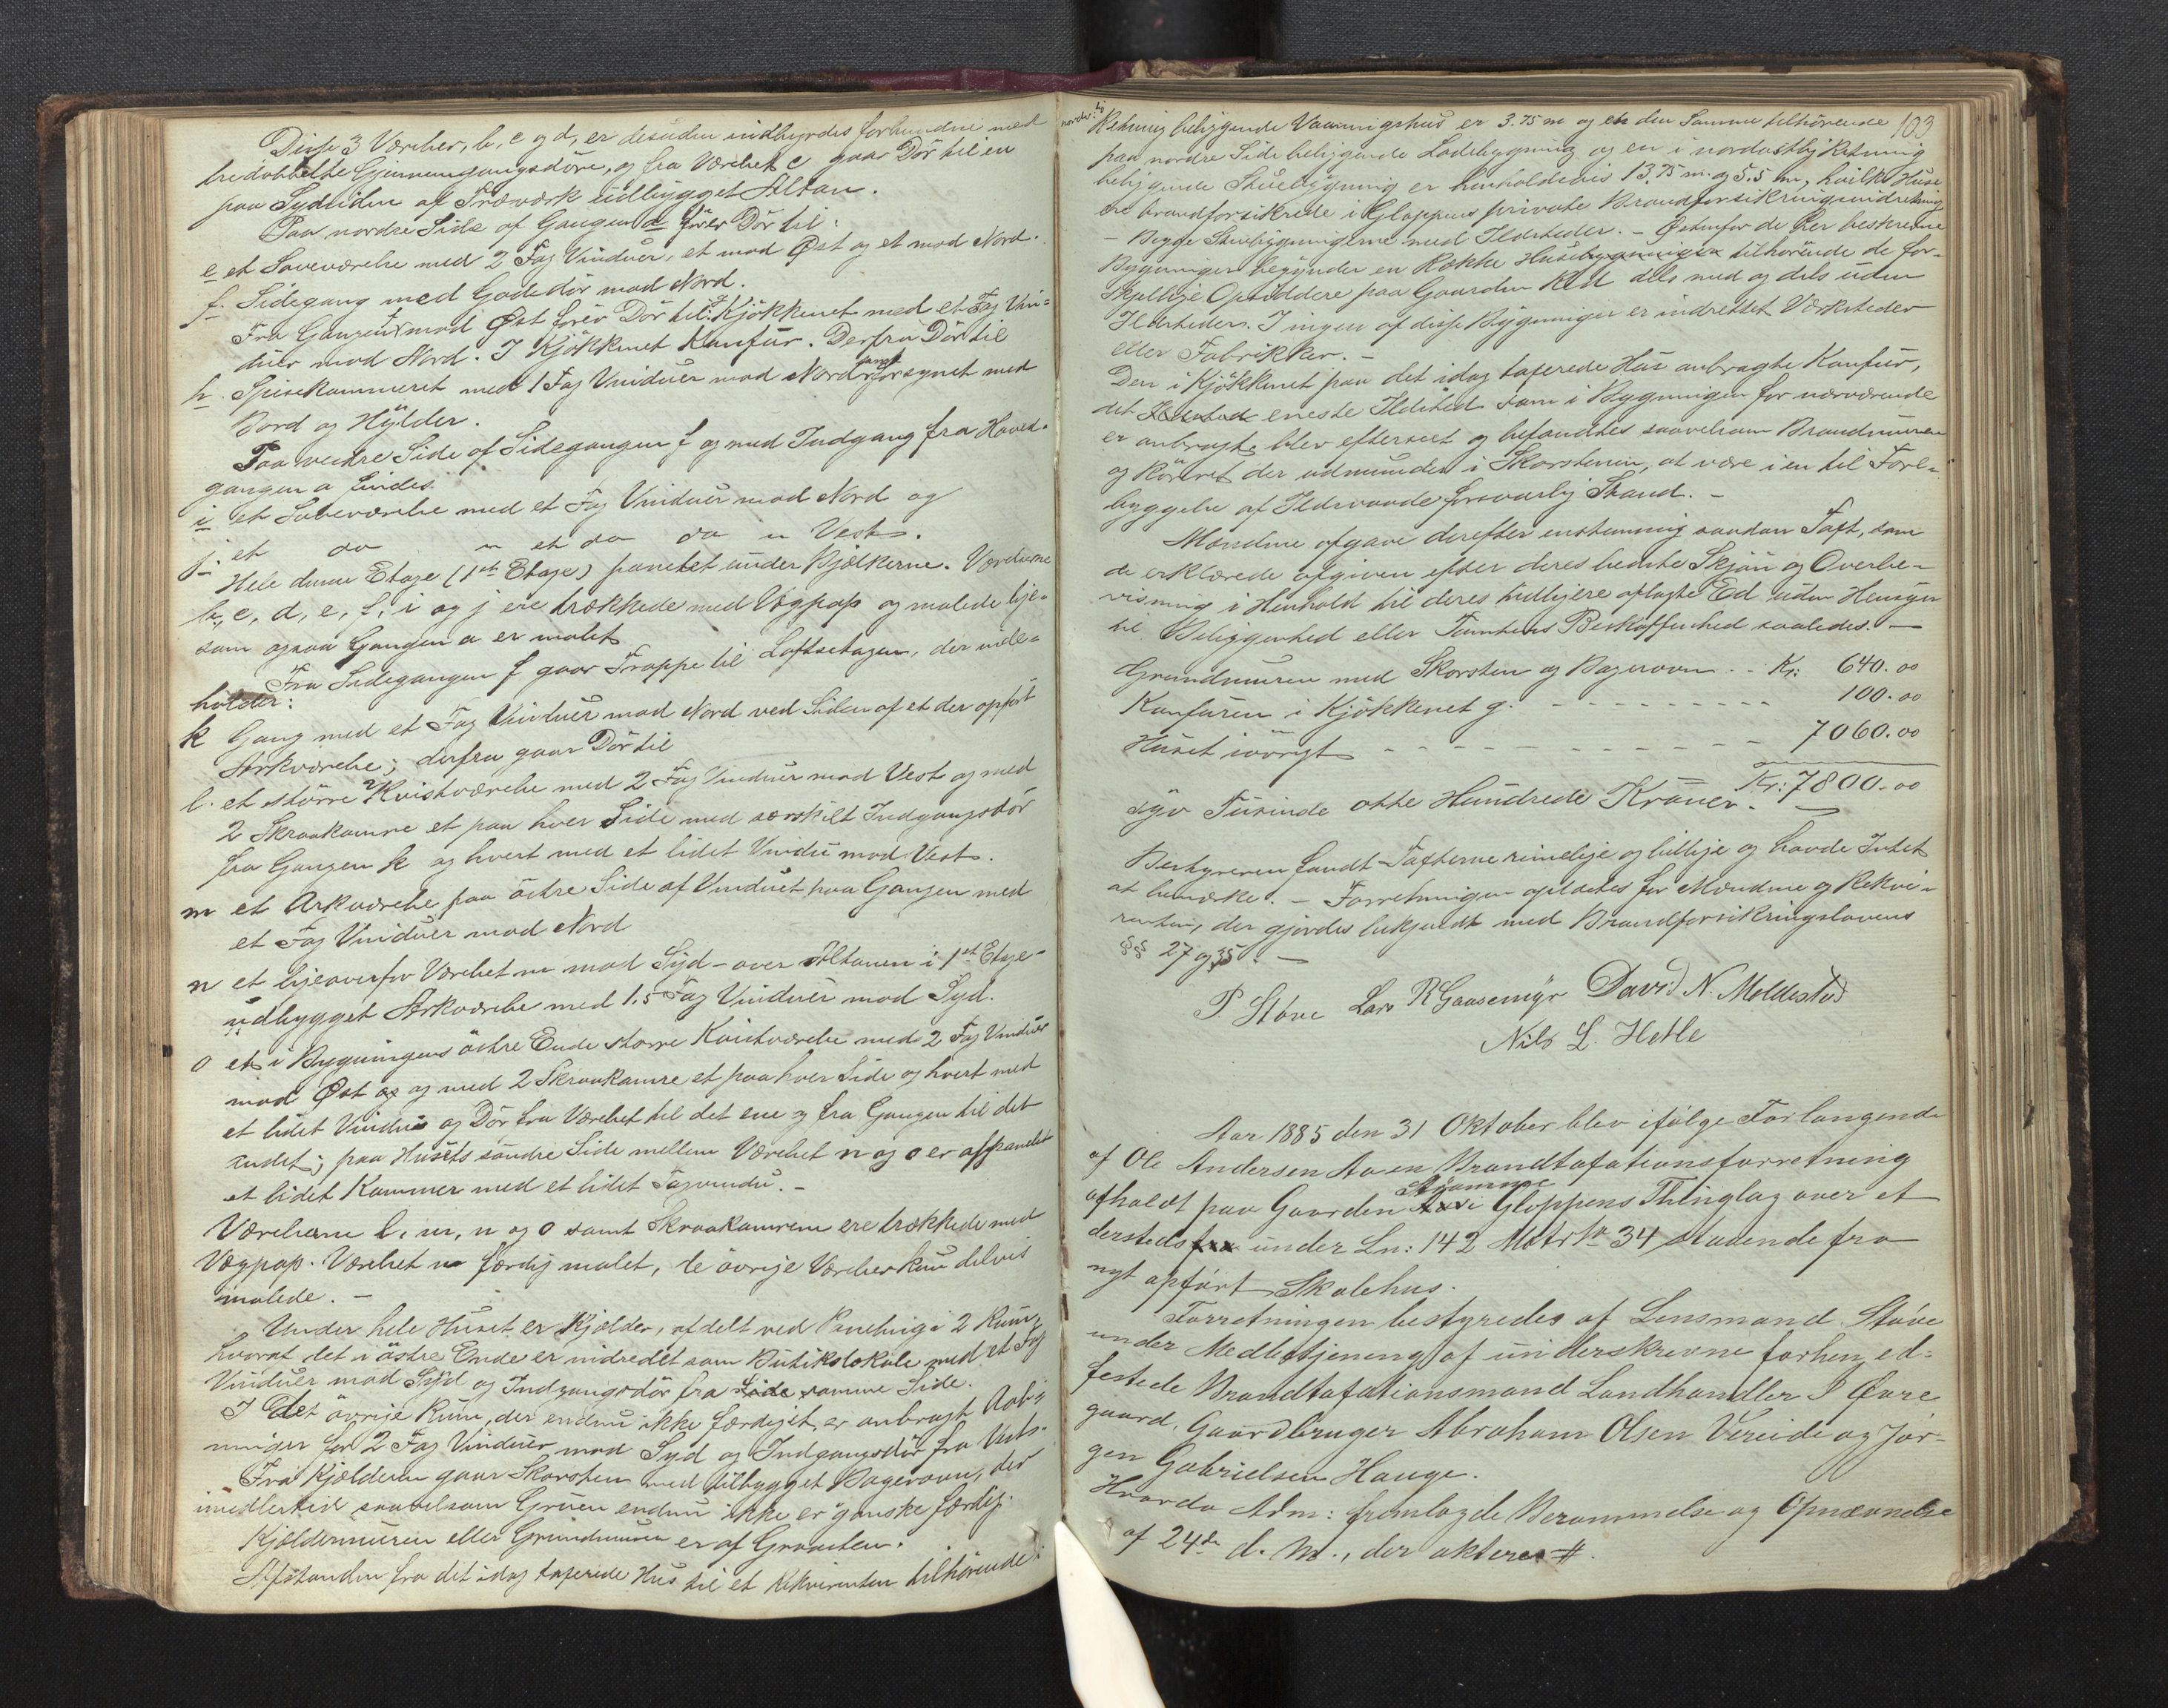 Disse 3 Værelser, b, c og d, er desuden indbyrdes forbundne med
tredobbelte Gjennemgangsdöre, og fra Værelset c gaar Dör til en
paa Sydsiden af Træværk udbygget Altan.
Paa nordre Side af Gangen a förer Dör til:
e et Soveværelse med 2 Fag Vinduer, et mod Öst og et mod Nord.
f. Sidegang med Gadedör mod Nord.
Fra Gangen f mod Öst förer Dör til: Kjökkenet med et Fag Vin=
duer mod Nord. I Kjökkenet Komfur. Derfra Dör til
h. Spisekammeret med 1 Fag Vinduer mod Nord samt forsynet med
Bord og Hylder.
Paa vestre Side af Sidegangen f og med Indgang fra Hoved=
gangen a findes
i et Soveværelse med et Fag Vinduer mod Nord og
j et do " et do do " Vest.
Hele denne Etage (1ste Etage) panelet under Bjelkerne. Værelserne
b, c, d, e, f, i og j ere trækkede med Vægpap og malede lige=
som ogsaa Gangen a er malet
Fra Sidegangen f gaar Trappe til Loftsetagen, der inde=
holder:
k Gang med et Fag Vinduer mod Nord ved Siden af et der opfört
Arkværelse; derfra gaar Dör til
l. et större Kvistværelse med 2 Fag Vinduer mod Vest og med
2 Skraakamre et paa hver Side med særskilt Indgangsdör
fra Gangen k og hvert med et lidet Vindu mod Vest.
m et Arkværelse paa östre Side af Vinduet paa Gangen med
et Fag Vinduer mod Nord
n et ligeoverfor Værelset m mod Syd - over Altanen i 1ste Etage -
udbygget Arkværelse med 1,5 Fag Vinduer mod Syd.
o et i Bygningens östre Ende större Kvistværelse med 2 Fag Vinduer
mod Öst og og med 2 Skraakamre et paa hver Side og hvert med
et lidet Vindu og Dör fra Værelset til det ene og fra Gangen til det
andet; paa Husets söndre Side mellem Værelset n og o er afpanelet
et lidet Kammer med et lidet Tagvindu. -
Værelserne l, m, n og o samt Skraakamrene ere trækkede med
Vægpap. Værelset n færdig malet, de övrige Værelser kun delvis
malede. -
Under hele Huset er Kjælder, afdelt ved Paneling i 2 Rum,
hvoraf det i östre Ende er indredet som Butikslokale med et Fag
Vinduer mod Syd og Indgangsdör fra Side samme Side.
I det övrige Rum, der endnu ikke færdigt, er anbragt Aab=
ninger for 2 Fag Vinduer mod Syd og Indgangsdör fra Vest.
Fra Kjælderen gaar Skorsten med tilbygget Bagerovn, der
imidlertid saavelsom Gruen endnu ikke er ganske færdig.
Kjældermuren eller Grundmuren er af Graasten.
Afstanden fra det idag taxerede Hus til et Rekvirenten tilhörende i
nordvestlig
Retning beliggende Vaaningshus er 3.75 m og en den Samme tilhörende 103
paa nordre Side beliggende Ladebygning og en i nordostlig Retning
beliggende Stuebygning er henholdsvis 13,75 m. og 5.5 m, hvilke Huse
ere brandforsikrede i Gloppens private Brandforsikringsindretning
- Begge Stuebygningerne med Ildsteder. - Östenfor de her beskrevne
Bygninger begynder en Række Husebygninger tilhörende de for-
skjellige Opsiddere paa Gaarden Red dels med og dels uden
Ildsteder. I ingen af disse Bygninger er indrettet Værksteder
eller Fabrikker. -
Den i Kjökkenet paa det idag taxerede Hus anbragte Komfur,
det Ildsted eneste Ildsted som i Bygningen for nærværende
er anbragt, blev efterseet og befandtes saavelsom Brandmuren
og Röret der udmunder i Skorstenen, at være i en til Fore-
byggelse af Ildsvaade forsvarlig Stand. -
Mændene afgave derefter enstemmig saadan Taxt, som
de erklærede afgiven efter deres bedste Skjön og Overbe-
visning i Henhold til deres tidligere aflagte Ed uden Hensyn
til Beliggenhed eller Tomtens Beskaffenhed saaledes. -
Grundmuren med Skorsten og Bagerovn - - Kr: 640.00
Komfuren i Kjökkenet g. - - - - - - - - - 100.00
Huset iövrigt - - - - - - - - - - - 7060.00
Kr: 7800.00
syv Tusinde otte Hundrede Kroner. -
Bestyreren fandt Taxterne rimelige og billige og havde Intet
at bemærke. - Forretningen oplæstes for Mændene og Rekvi-
renten, der gjordes bekjendt med Brandforsikringslovens
§§ 27 og 35. -
P. Stöve Lars R Gaasemyr David N. Moldestad
Nils L. Hetle
Aar 1885 den 31 Oktober blev ifölge Forlangende
af Ole Andersen Aaen Brandtaxationsforretning
afholdt paa Gaarden Aa i Gloppens Thinglag over et
dersteds fra under Ln: 142 Matr No 34 staaende fra
nyt opfört Skolehus.
Forretningen bestyredes af Lensmand Stöve
under Medbetjening af underskrevne forhen ed=
festede Brandtaxationsmænd Landhandler I Övre
gaard, Gaardbruger Abraham Olsen Vereide og Jör-
gen Gabrielsen Hauge.
Hvorda Adm: fremlagde Berammelse og Opnævnelse
af 24de d. M., der akteres #.